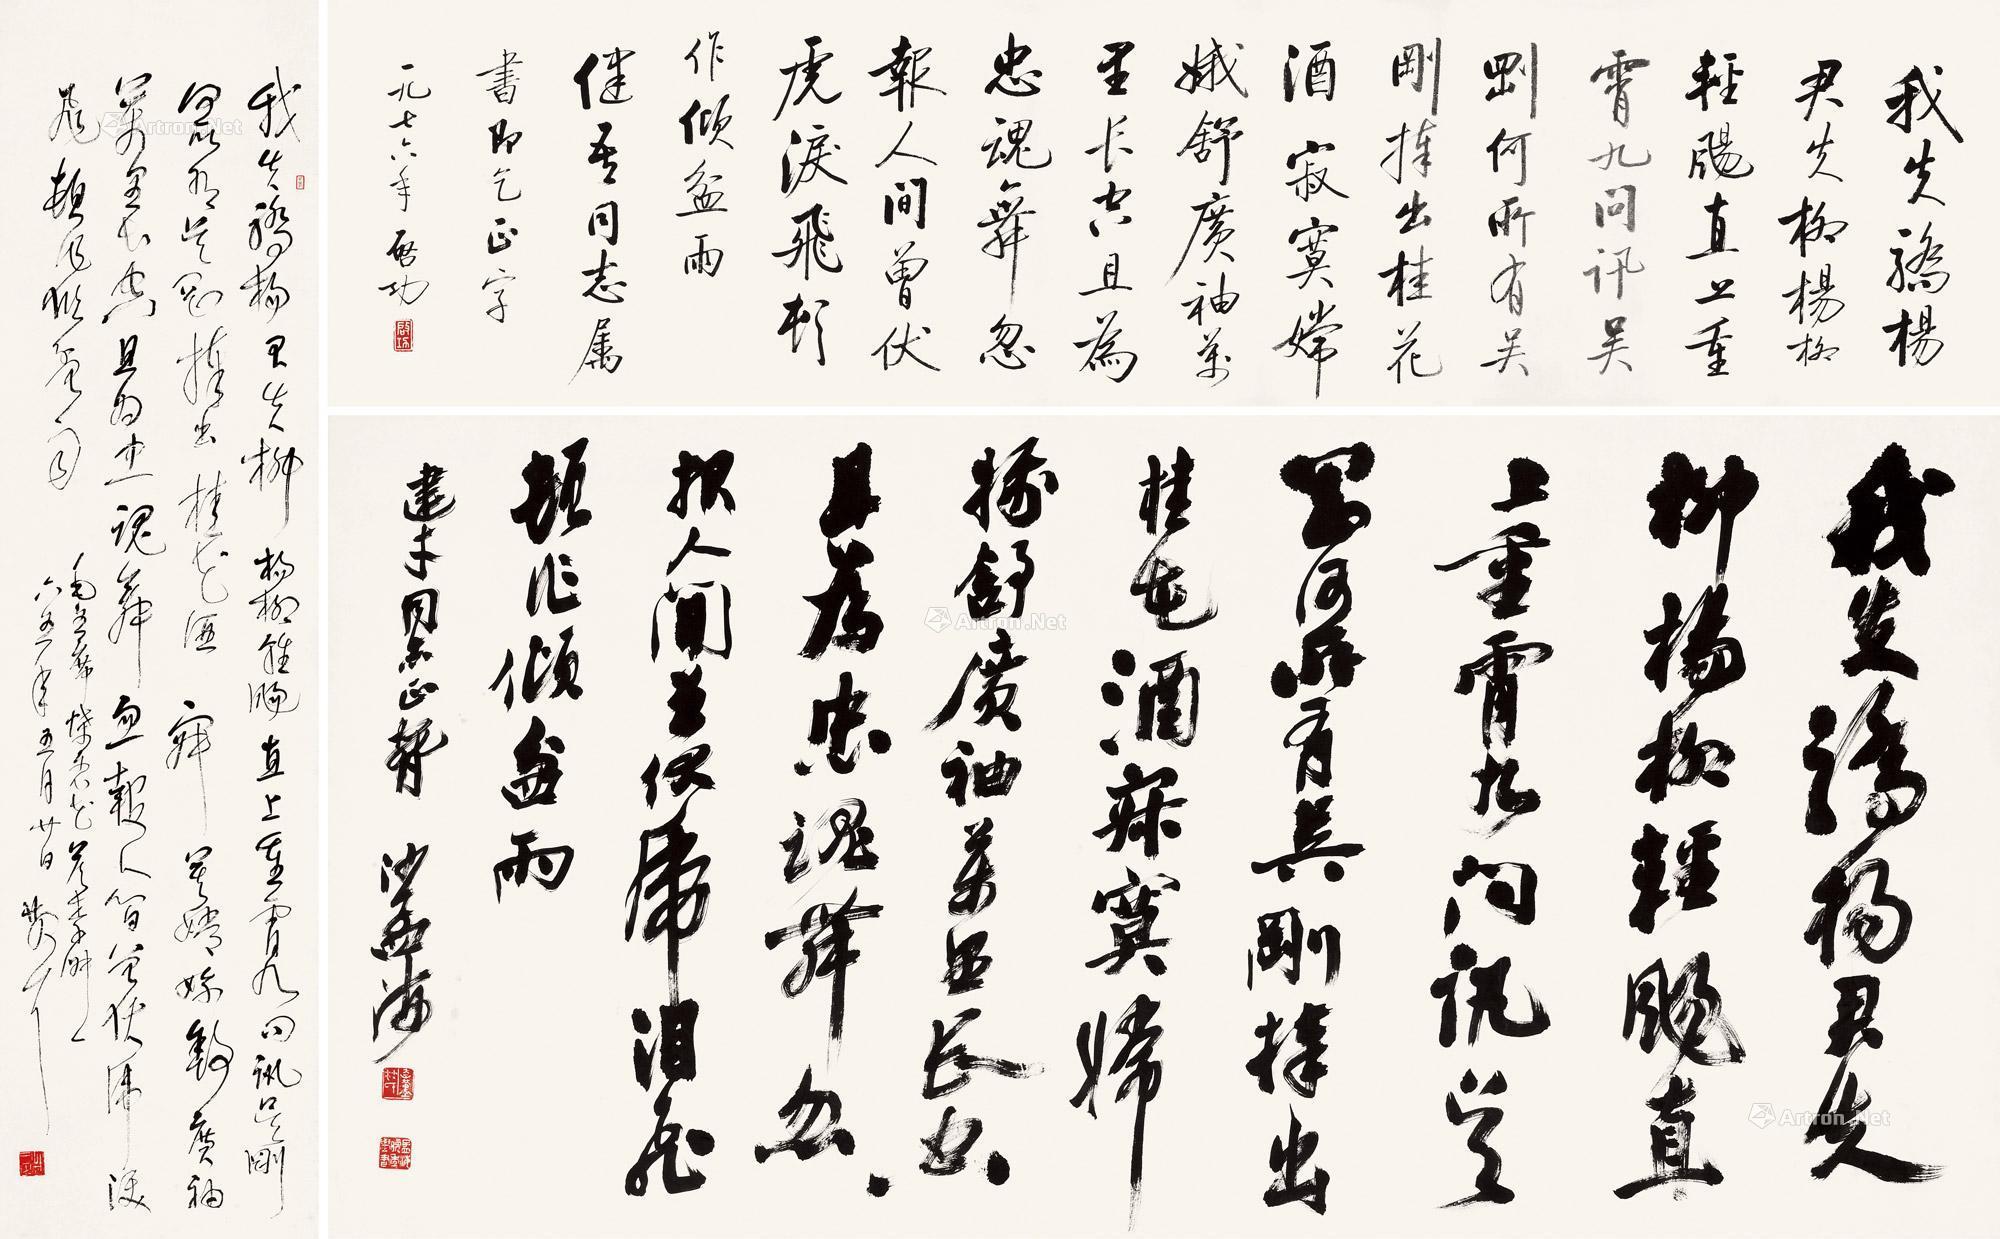 我失驕楊
君失柳楊柳
輕颺直上重
霄九問訊吴
剛何所有吴
剛捧出桂花
酒寂寞嫦
娥舒廣袖萬
里长空且為
忠魂舞忽
報人间曾伏
虎淚飛頓
作傾盆雨
健吾同志属
書即乞正字
一九七六年啓功
我失驕楊君失
柳楊柳輕颺直
上重霄九问訊吴
剛何所有吴剛捧出
桂花酒寂寞嫦
娥舒廣袖萬里長空
且為忠魂舞忽
报人间曾伏虎泪飛
頓作傾盆雨
建才同志正 沙孟海
我失驕楊君失柳楊柳輕颺直上重霄九问訊吴剛
何所有吴剛捧出桂花酒寂寞嫦娥舒廣袖
萬里长空且為忠魂舞忽報人间曾伏虎淚
飛頓作傾盆雨
毛主席蝶恋花答李淑一
六五年五月廿日
Artron.Net
Artron.Net
Artron.Net
Artron.Net